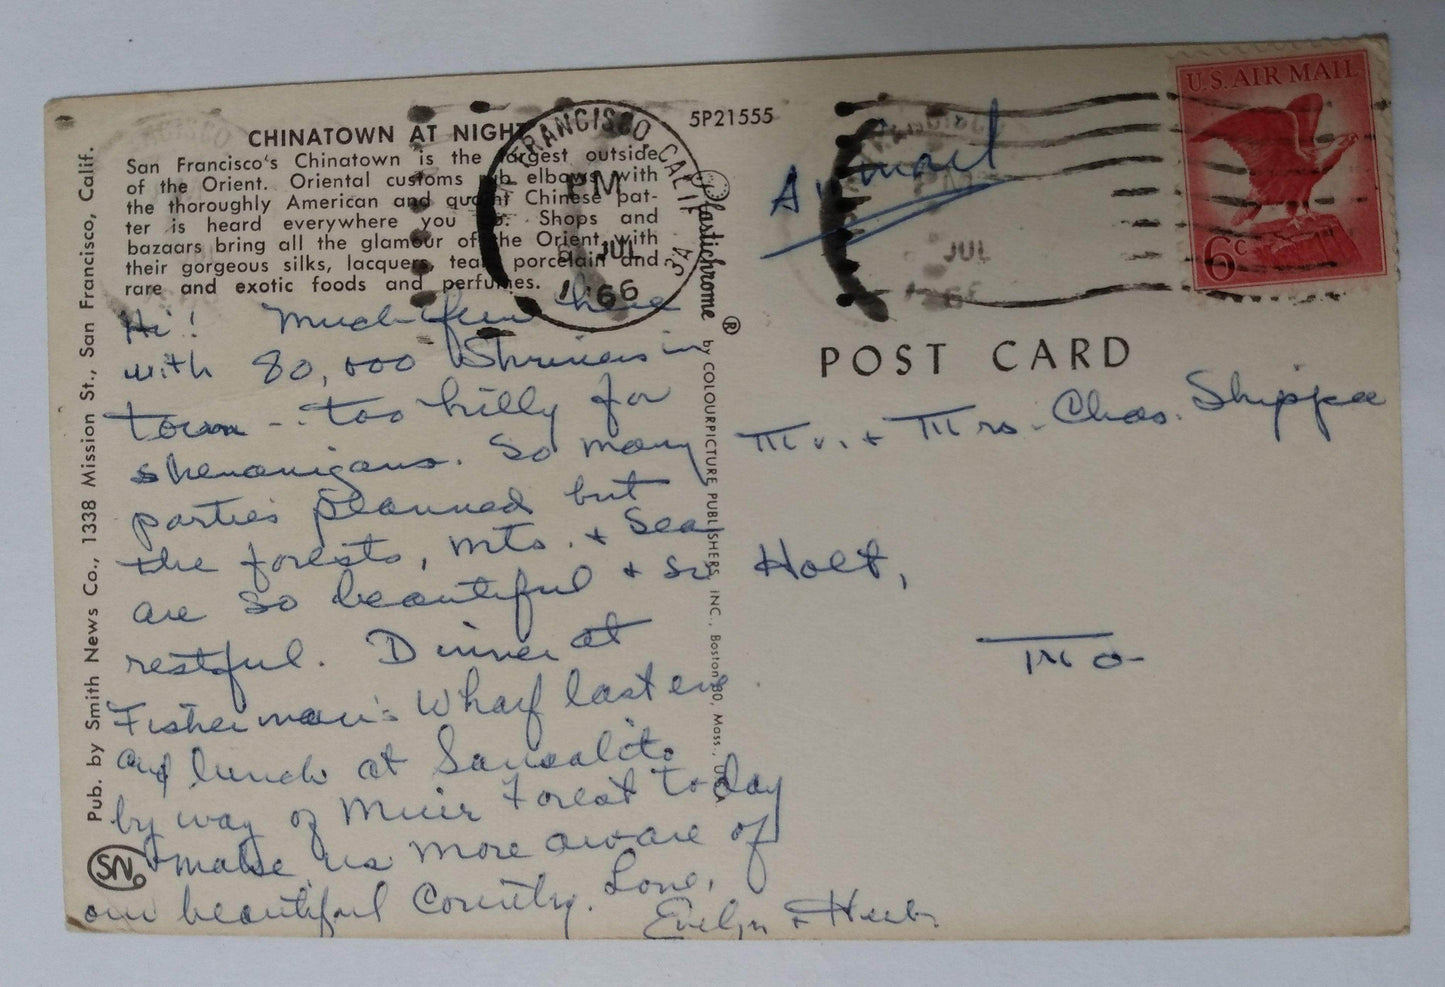 CHINATOWN AT NIGHT
San Francisco's Chinatown is the largest outside
of the Orient. Oriental customs rub elbows with
the thoroughly American and quaint Chinese pat-
ter is heard everywhere you go. Shops and
bazaars bring all the glamour of the Orient with
their gorgeous silks, lacquers, teas, porcelain and
rare and exotic foods and perfumes.
5P21555
FRANCISCO, CALIF
PM
JUL
1966
34
Air mail
PM
JUL
U.S. AIR MAIL
6c
POST CARD
Hi! Much fun here
with 80,000 Shriners in
town - too hilly for
shenanigans. So many
parties planned but
the forests, mts. + sea
are so beautiful + so
restful. Dinner at
Fisherman's Wharf last eve
and lunch at Sausalito
by way of Muir Forest today
+ make us more aware of
our beautiful Country. Love,
Evelyn + Herb
Mr. + Mrs. Chas. Shippee
Holt,
Mo-
Pub. by Smith News Co., 1338 Mission St., San Francisco, Calif.
SN
Plastichrome ® by COLOURPICTURE PUBLISHERS, INC., Boston 30, Mass., U.S.A.